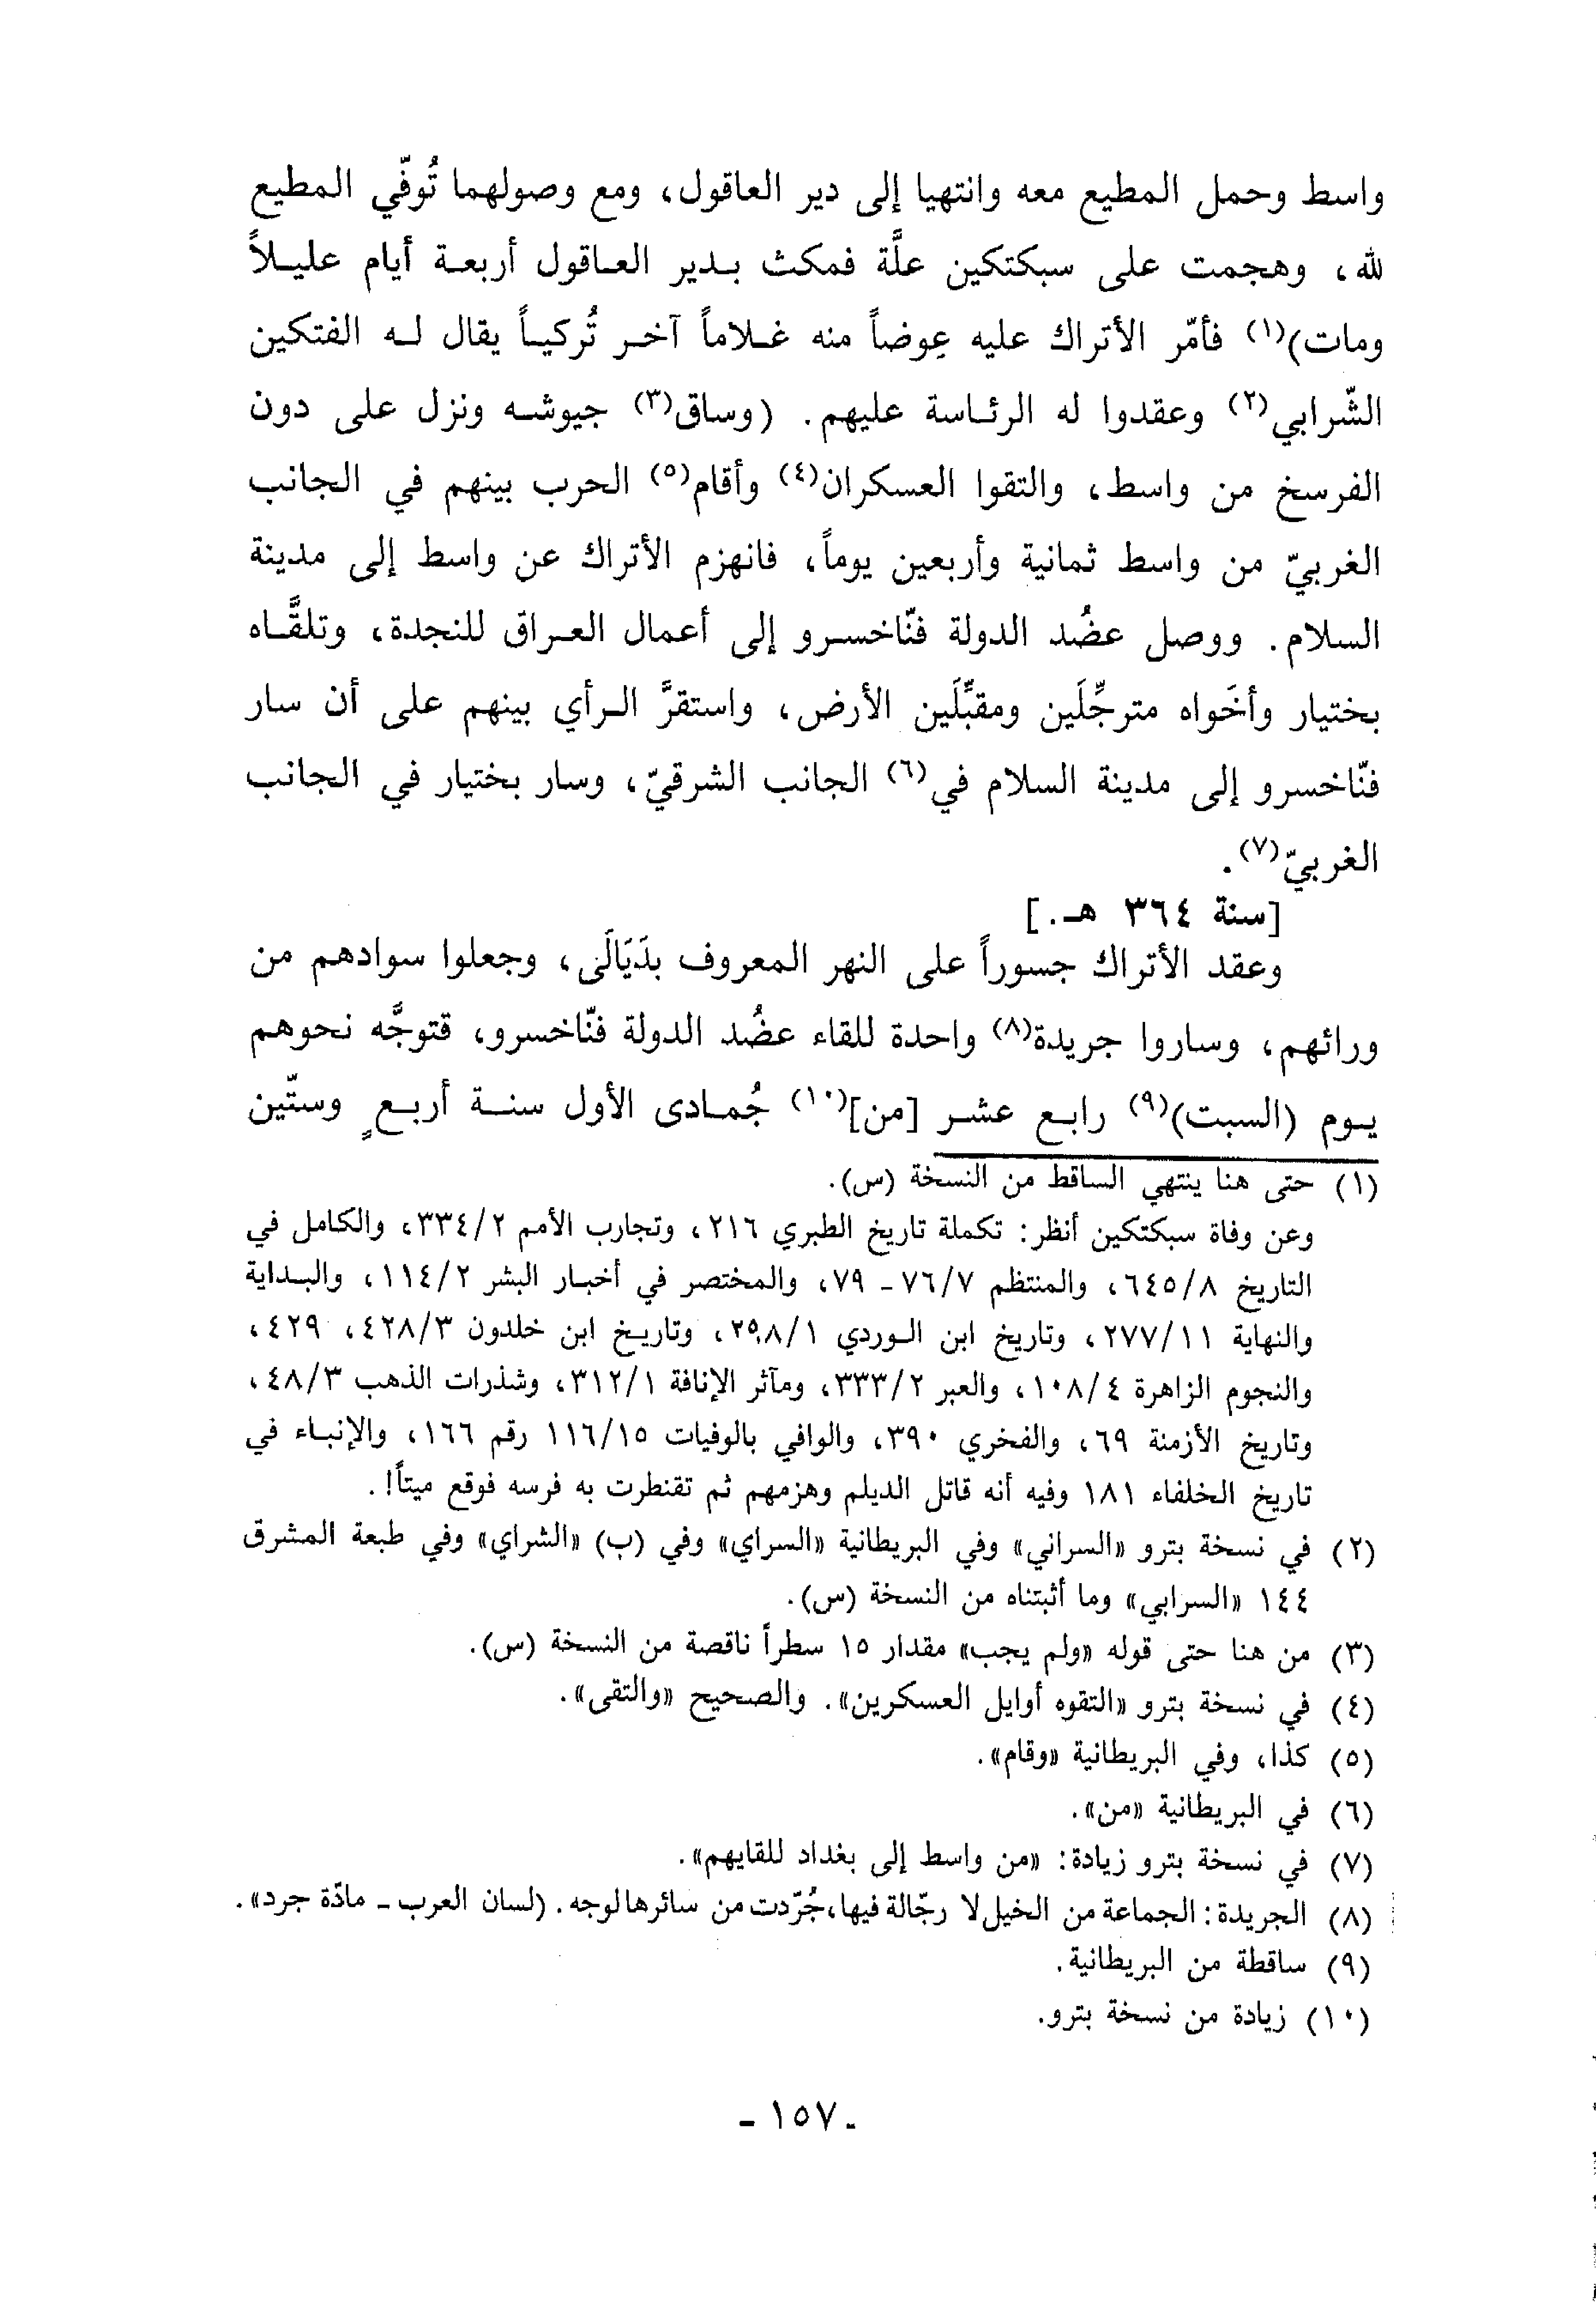 واسط وحمل المطيع معه وانتهيا إلى دير العاقول، ومع وصولهما تُوفّي المطيع
لله، وهجمت على سبكتكين علَّة فمكث بـدير العـاقول أربعـة أيام عليـلاً
ومات)(١) فأمّر الأتراك عليه عِوضاً منه غـلاماً آخـر تُركيـاً يقال لـه الفتكين
الشّرابي(٢) وعقدوا له الرئـاسة عليهم. (وساق(٣) جيوشـه ونزل على دون
الفرسخ من واسط، والتقوا العسكران(٤) وأقام(٥) الحرب بينهم في الجانب
الغربيّ من واسط ثمانية وأربعين يوماً، فانهزم الأتراك عن واسط إلى مدينة
السلام. ووصل عضُد الدولة فنّاخسـرو إلى أعمال العـراق للنجدة، وتلقَّـاه
بختيار وأخَواه مترجِّلَين ومقبِّلَين الأرض، واستقرَّ الـرأي بينهم على أن سار
فنّاخسرو إلى مدينة السلام في(٦) الجانب الشرقيّ، وسار بختيار في الجانب
الغربيّ(٧).
[سنة ٣٦٤ هـ.]
وعقد الأتراك جسوراً على النهر المعروف بدَيَالَى، وجعلوا سوادهم من
ورائهم، وساروا جريدة(٨) واحدة للقاء عضُد الدولة فنّاخسرو، قتوجَّه نحوهم
يـوم (السبت)(٩) رابـع عشـر [من](١٠) جُمـادى الأول سنـة أربـعٍ وستّين
(١) حتى هنا ينتهي الساقط من النسخة (س).
وعن وفاة سبكتكين أنظر: تكملة تاريخ الطبري ٢١٦، وتجارب الأمم ٣٣٤/٢، والكامل في
التاريخ ٦٤٥/٨، والمنتظم ٧٦/٧ - ٧٩، والمختصر في أخبـار البشر ١١٤/٢، والبـداية
والنهاية ٢٧٧/١١، وتاريخ ابن الـوردي ٢٩٨/١، وتاريـخ ابن خلدون ٤٢٨/٣، ٤٢٩،
والنجوم الزاهرة ١٠٨/٤، والعبر ٣٣٣/٢، ومآثر الإنافة ٣١٢/١، وشذرات الذهب ٤٨/٣،
وتاريخ الأزمنة ٦٩، والفخري ٣٩٠، والوافي بالوفيات ١١٦/١٥ رقم ١٦٦، والإنبـاء في
تاريخ الخلفاء ١٨١ وفيه أنه قاتل الديلم وهزمهم ثم تقنطرت به فرسه فوقع ميتاً!.
(٢) في نسخة بترو «السراني» وفي البريطانية «السراي» وفي (ب) «الشراي» وفي طبعة المشرق
١٤٤ «السرابي» وما أثبتناه من النسخة (س).
(٣) من هنا حتى قوله «ولم يجب» مقدار ١٥ سطراً ناقصة من النسخة (س).
(٤) في نسخة بترو «التقوه أوايل العسكرين». والصحيح «والتقى».
(٥) كذا، وفي البريطانية «وقام».
(٦) في البريطانية «من».
(٧) في نسخة بترو زيادة: «من واسط إلى بغداد للقايهم».
(٨) الجريدة: الجماعة من الخيل لا رجّالة فيها، جُرّدت من سائرها لوجه. (لسان العرب - مادّة جرد».
(٩) ساقطة من البريطانية.
(١٠) زيادة من نسخة بترو.
- ١٥٧ -